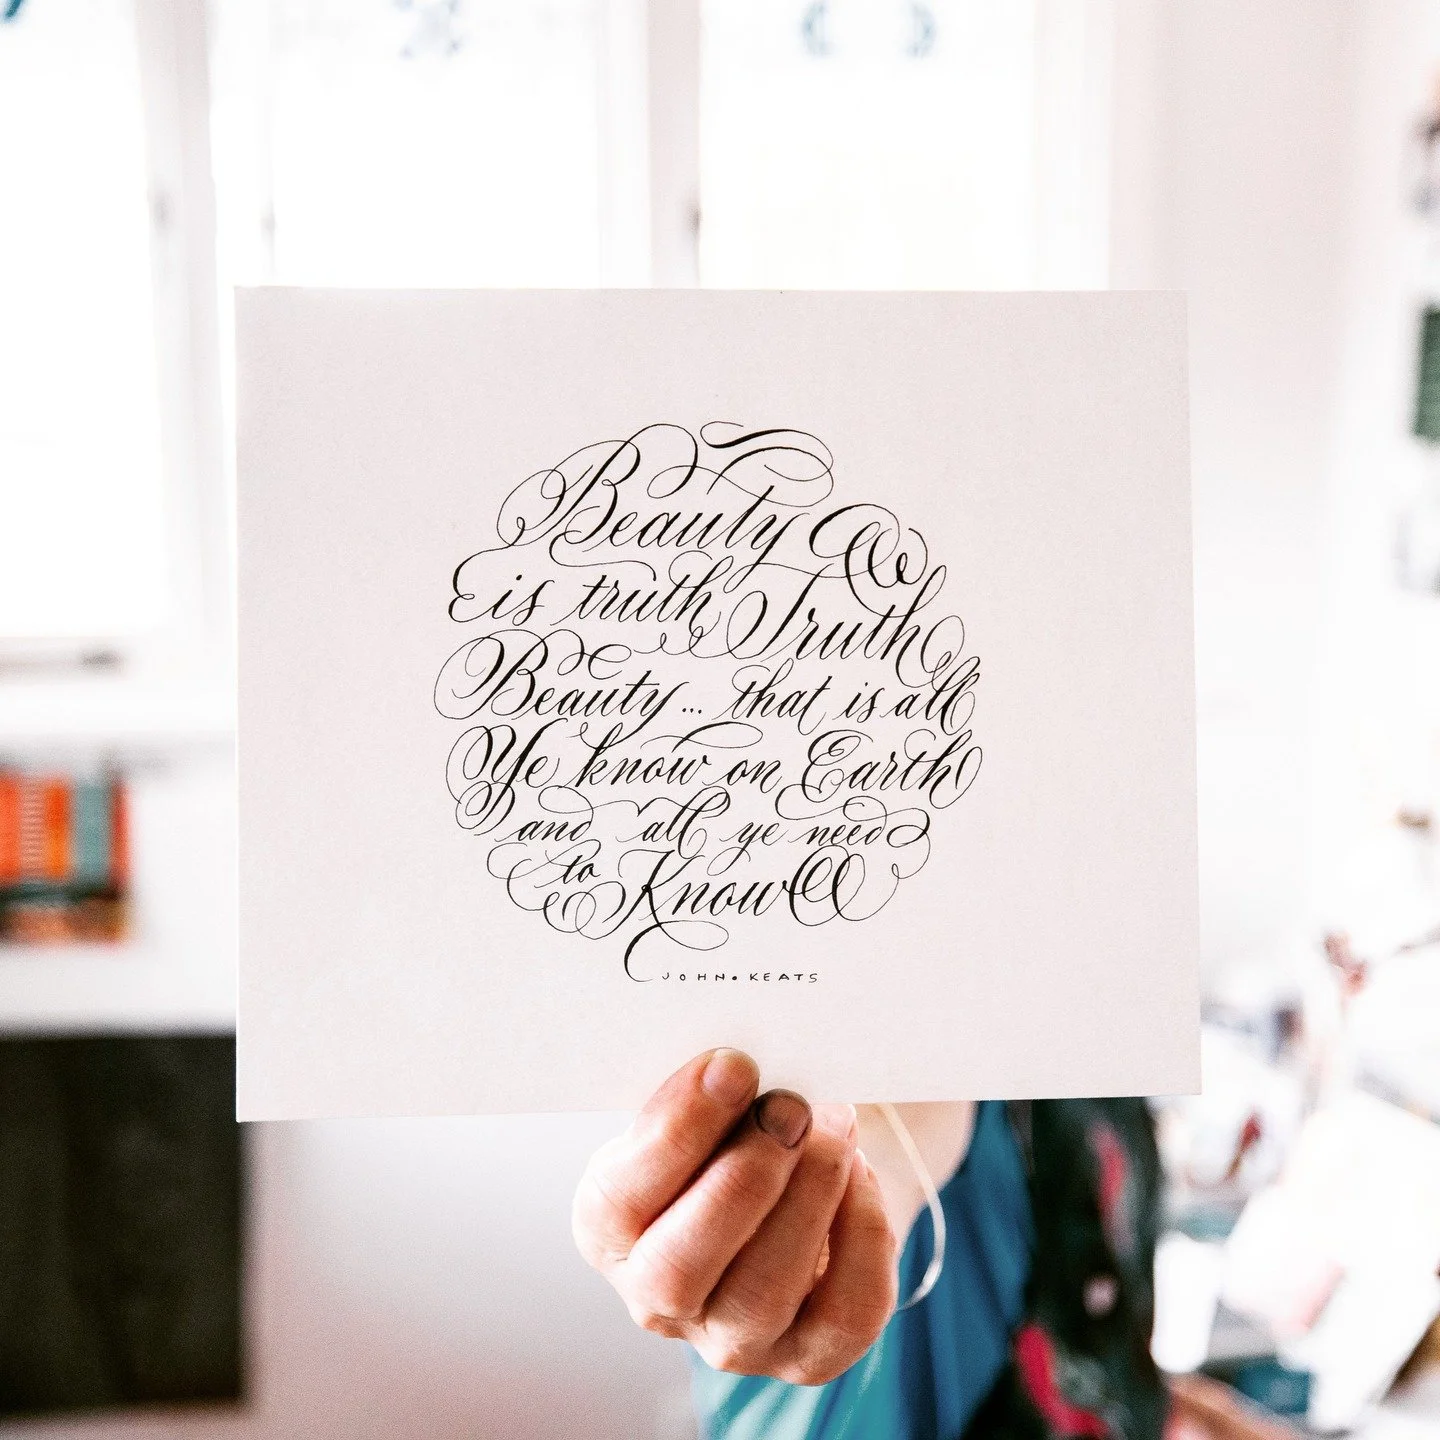 Beauty
is truth Truth
Beauty... that is all
Ye know on Earth
and all ye need
to Know
JOHN. KEATS